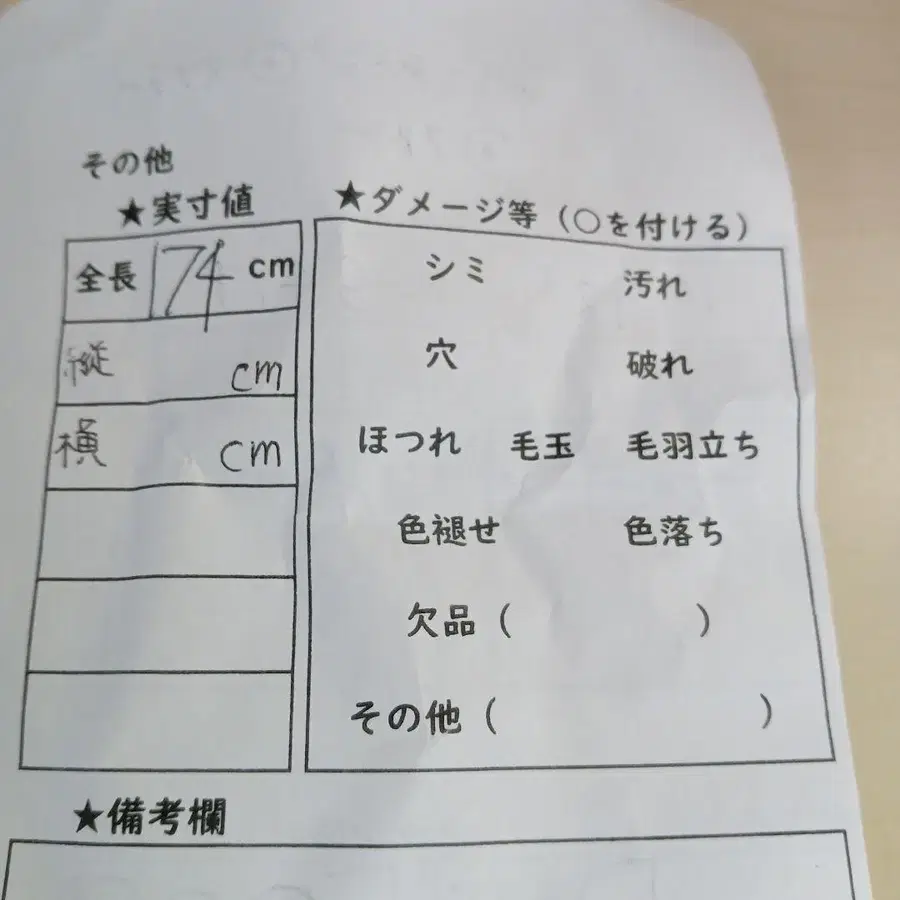 その他
★実寸値
全長 174 cm
縦 cm
横 cm
★ダメージ等（○を付ける）
シミ 汚れ
穴 破れ
ほつれ 毛玉 毛羽立ち
色褪せ 色落ち
欠品（ ）
その他（ ）
★備考欄